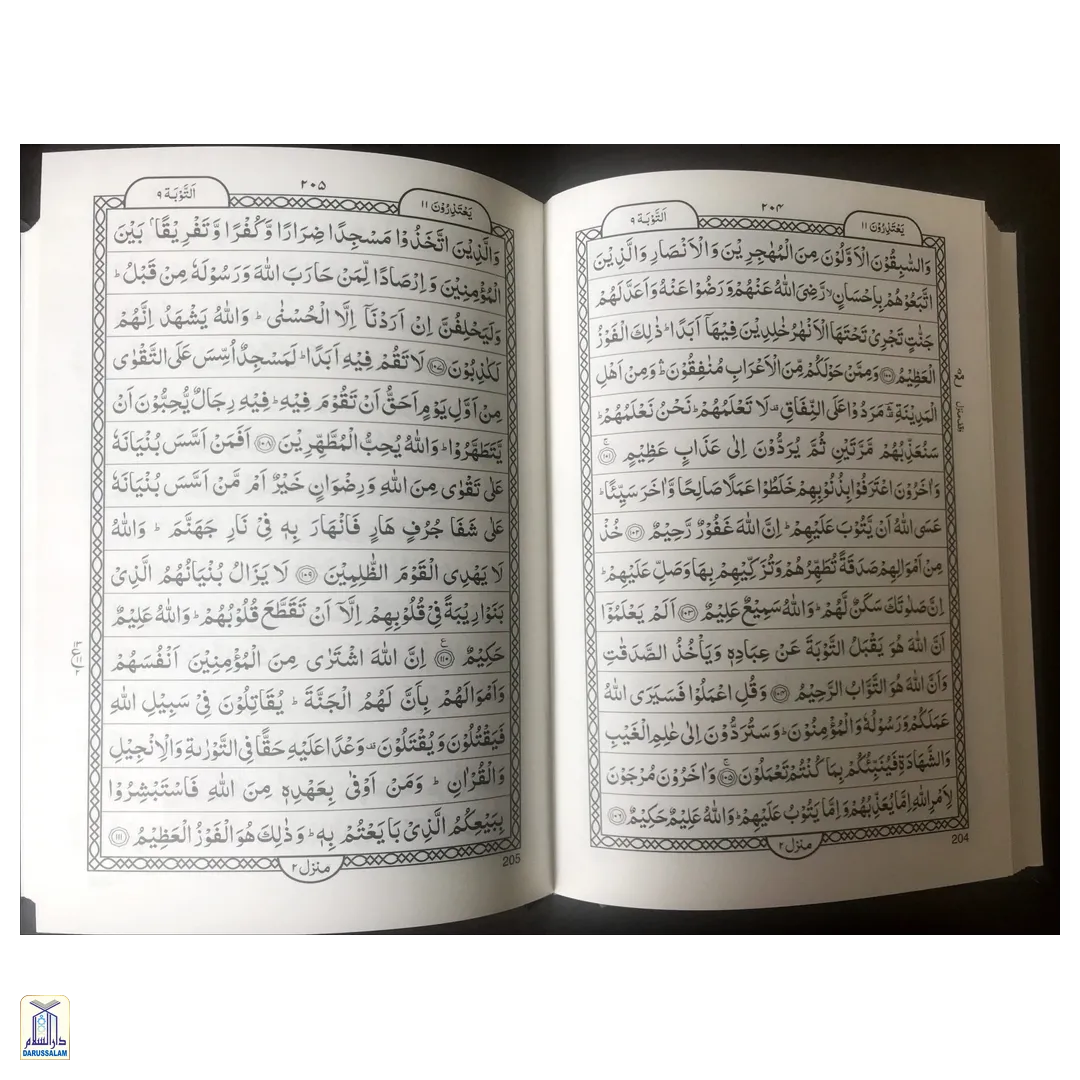 ۲۰۴
يَعْتَذِرُوْنَ ۱۱
اَلتَّوْبَة ۹
وَالسّٰبِقُوْنَ الْاَوَّلُوْنَ مِنَ الْمُهٰجِرِيْنَ وَالْاَنْصَارِ وَالَّذِيْنَ
اتَّبَعُوْهُمْ بِاِحْسَانٍ ۙ رَّضِىَ اللّٰهُ عَنْهُمْ وَرَضُوْا عَنْهُ وَاَعَدَّ لَهُمْ
جَنّٰتٍ تَجْرِىْ تَحْتَهَا الْاَنْهٰرُ خٰلِدِيْنَ فِيْهَاۤ اَبَدًا ؕ ذٰلِكَ الْفَوْزُ
الْعَظِيْمُ ۝۱۰۰ وَمِمَّنْ حَوْلَكُمْ مِّنَ الْاَعْرَابِ مُنٰفِقُوْنَ ؕۛ وَمِنْ اَهْلِ
الْمَدِيْنَةِ ؔۛ مَرَدُوْا عَلَى النِّفَاقِ ۣ لَا تَعْلَمُهُمْ ؕ نَحْنُ نَعْلَمُهُمْ ؕ
سَنُعَذِّبُهُمْ مَّرَّتَيْنِ ثُمَّ يُرَدُّوْنَ اِلٰى عَذَابٍ عَظِيْمٍ ۝۱۰۱
وَاٰخَرُوْنَ اعْتَرَفُوْا بِذُنُوْبِهِمْ خَلَطُوْا عَمَلًا صَالِحًا وَّاٰخَرَ سَيِّئًا ؕ
عَسَى اللّٰهُ اَنْ يَّتُوْبَ عَلَيْهِمْ ؕ اِنَّ اللّٰهَ غَفُوْرٌ رَّحِيْمٌ ۝۱۰۲ خُذْ
مِنْ اَمْوَالِهِمْ صَدَقَةً تُطَهِّرُهُمْ وَتُزَكِّيْهِمْ بِهَا وَصَلِّ عَلَيْهِمْ ؕ
اِنَّ صَلٰوتَكَ سَكَنٌ لَّهُمْ ؕ وَاللّٰهُ سَمِيْعٌ عَلِيْمٌ ۝۱۰۳ اَلَمْ يَعْلَمُوْۤا
اَنَّ اللّٰهَ هُوَ يَقْبَلُ التَّوْبَةَ عَنْ عِبَادِهٖ وَيَاْخُذُ الصَّدَقٰتِ
وَاَنَّ اللّٰهَ هُوَ التَّوَّابُ الرَّحِيْمُ ۝۱۰۴ وَقُلِ اعْمَلُوْا فَسَيَرَى اللّٰهُ
عَمَلَكُمْ وَرَسُوْلُهٗ وَالْمُؤْمِنُوْنَ ؕ وَسَتُرَدُّوْنَ اِلٰى عٰلِمِ الْغَيْبِ
وَالشَّهَادَةِ فَيُنَبِّئُكُمْ بِمَا كُنْتُمْ تَعْمَلُوْنَ ۝۱۰۵ وَاٰخَرُوْنَ مُرْجَوْنَ
لِاَمْرِ اللّٰهِ اِمَّا يُعَذِّبُهُمْ وَاِمَّا يَتُوْبُ عَلَيْهِمْ ؕ وَاللّٰهُ عَلِيْمٌ حَكِيْمٌ ۝۱۰۶
منزل ۲
204
۲۰۵
يَعْتَذِرُوْنَ ۱۱
اَلتَّوْبَة ۹
وَالَّذِيْنَ اتَّخَذُوْا مَسْجِدًا ضِرَارًا وَّكُفْرًا وَّتَفْرِيْقًۢا بَيْنَ
الْمُؤْمِنِيْنَ وَاِرْصَادًا لِّمَنْ حَارَبَ اللّٰهَ وَرَسُوْلَهٗ مِنْ قَبْلُ ؕ
وَلَيَحْلِفُنَّ اِنْ اَرَدْنَاۤ اِلَّا الْحُسْنٰى ؕ وَاللّٰهُ يَشْهَدُ اِنَّهُمْ
لَكٰذِبُوْنَ ۝۱۰۷ لَا تَقُمْ فِيْهِ اَبَدًا ؕ لَمَسْجِدٌ اُسِّسَ عَلَى التَّقْوٰى
مِنْ اَوَّلِ يَوْمٍ اَحَقُّ اَنْ تَقُوْمَ فِيْهِ ؕ فِيْهِ رِجَالٌ يُّحِبُّوْنَ اَنْ
يَّتَطَهَّرُوْا ؕ وَاللّٰهُ يُحِبُّ الْمُطَّهِّرِيْنَ ۝۱۰۸ اَفَمَنْ اَسَّسَ بُنْيَانَهٗ
عَلٰى تَقْوٰى مِنَ اللّٰهِ وَرِضْوَانٍ خَيْرٌ اَمْ مَّنْ اَسَّسَ بُنْيَانَهٗ
عَلٰى شَفَا جُرُفٍ هَارٍ فَانْهَارَ بِهٖ فِىْ نَارِ جَهَنَّمَ ؕ وَاللّٰهُ
لَا يَهْدِى الْقَوْمَ الظّٰلِمِيْنَ ۝۱۰۹ لَا يَزَالُ بُنْيَانُهُمُ الَّذِىْ
بَنَوْا رِيْبَةً فِىْ قُلُوْبِهِمْ اِلَّاۤ اَنْ تَقَطَّعَ قُلُوْبُهُمْ ؕ وَاللّٰهُ عَلِيْمٌ
حَكِيْمٌ ۝۱۱۰ اِنَّ اللّٰهَ اشْتَرٰى مِنَ الْمُؤْمِنِيْنَ اَنْفُسَهُمْ
وَاَمْوَالَهُمْ بِاَنَّ لَهُمُ الْجَنَّةَ ؕ يُقَاتِلُوْنَ فِىْ سَبِيْلِ اللّٰهِ
فَيَقْتُلُوْنَ وَيُقْتَلُوْنَ ۣ وَعْدًا عَلَيْهِ حَقًّا فِى التَّوْرٰىةِ وَالْاِنْجِيْلِ
وَالْقُرْاٰنِ ؕ وَمَنْ اَوْفٰى بِعَهْدِهٖ مِنَ اللّٰهِ فَاسْتَبْشِرُوْا
بِبَيْعِكُمُ الَّذِىْ بَايَعْتُمْ بِهٖ ؕ وَذٰلِكَ هُوَ الْفَوْزُ الْعَظِيْمُ ۝۱۱۱
منزل ۲
205
دار السلام
DARUSSALAM